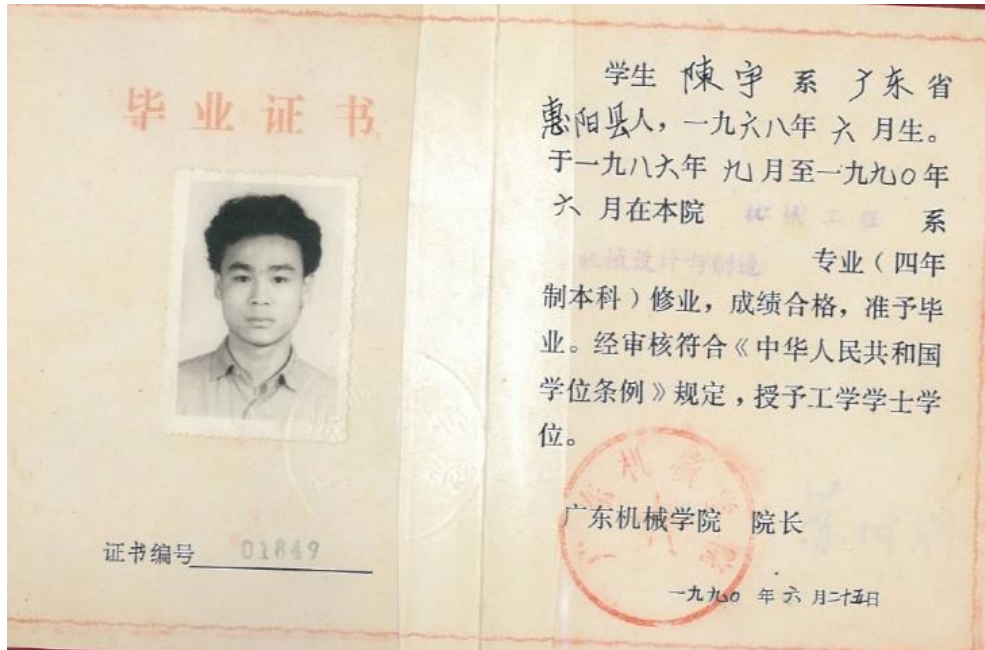 毕业证书
证书编号 01849
学生 陳宇 系 广东省
惠阳县人，一九六八年 六 月生。
于一九八六年 九 月至一九九〇年
六 月在本院 机械工程 系
机械设计与制造 专业（四年
制本科）修业，成绩合格，准予毕
业。经审核符合《中华人民共和国
学位条例》规定，授予工学学士学
位。
广东机械学院
广东机械学院 院长
一九九〇 年 六 月二十五日